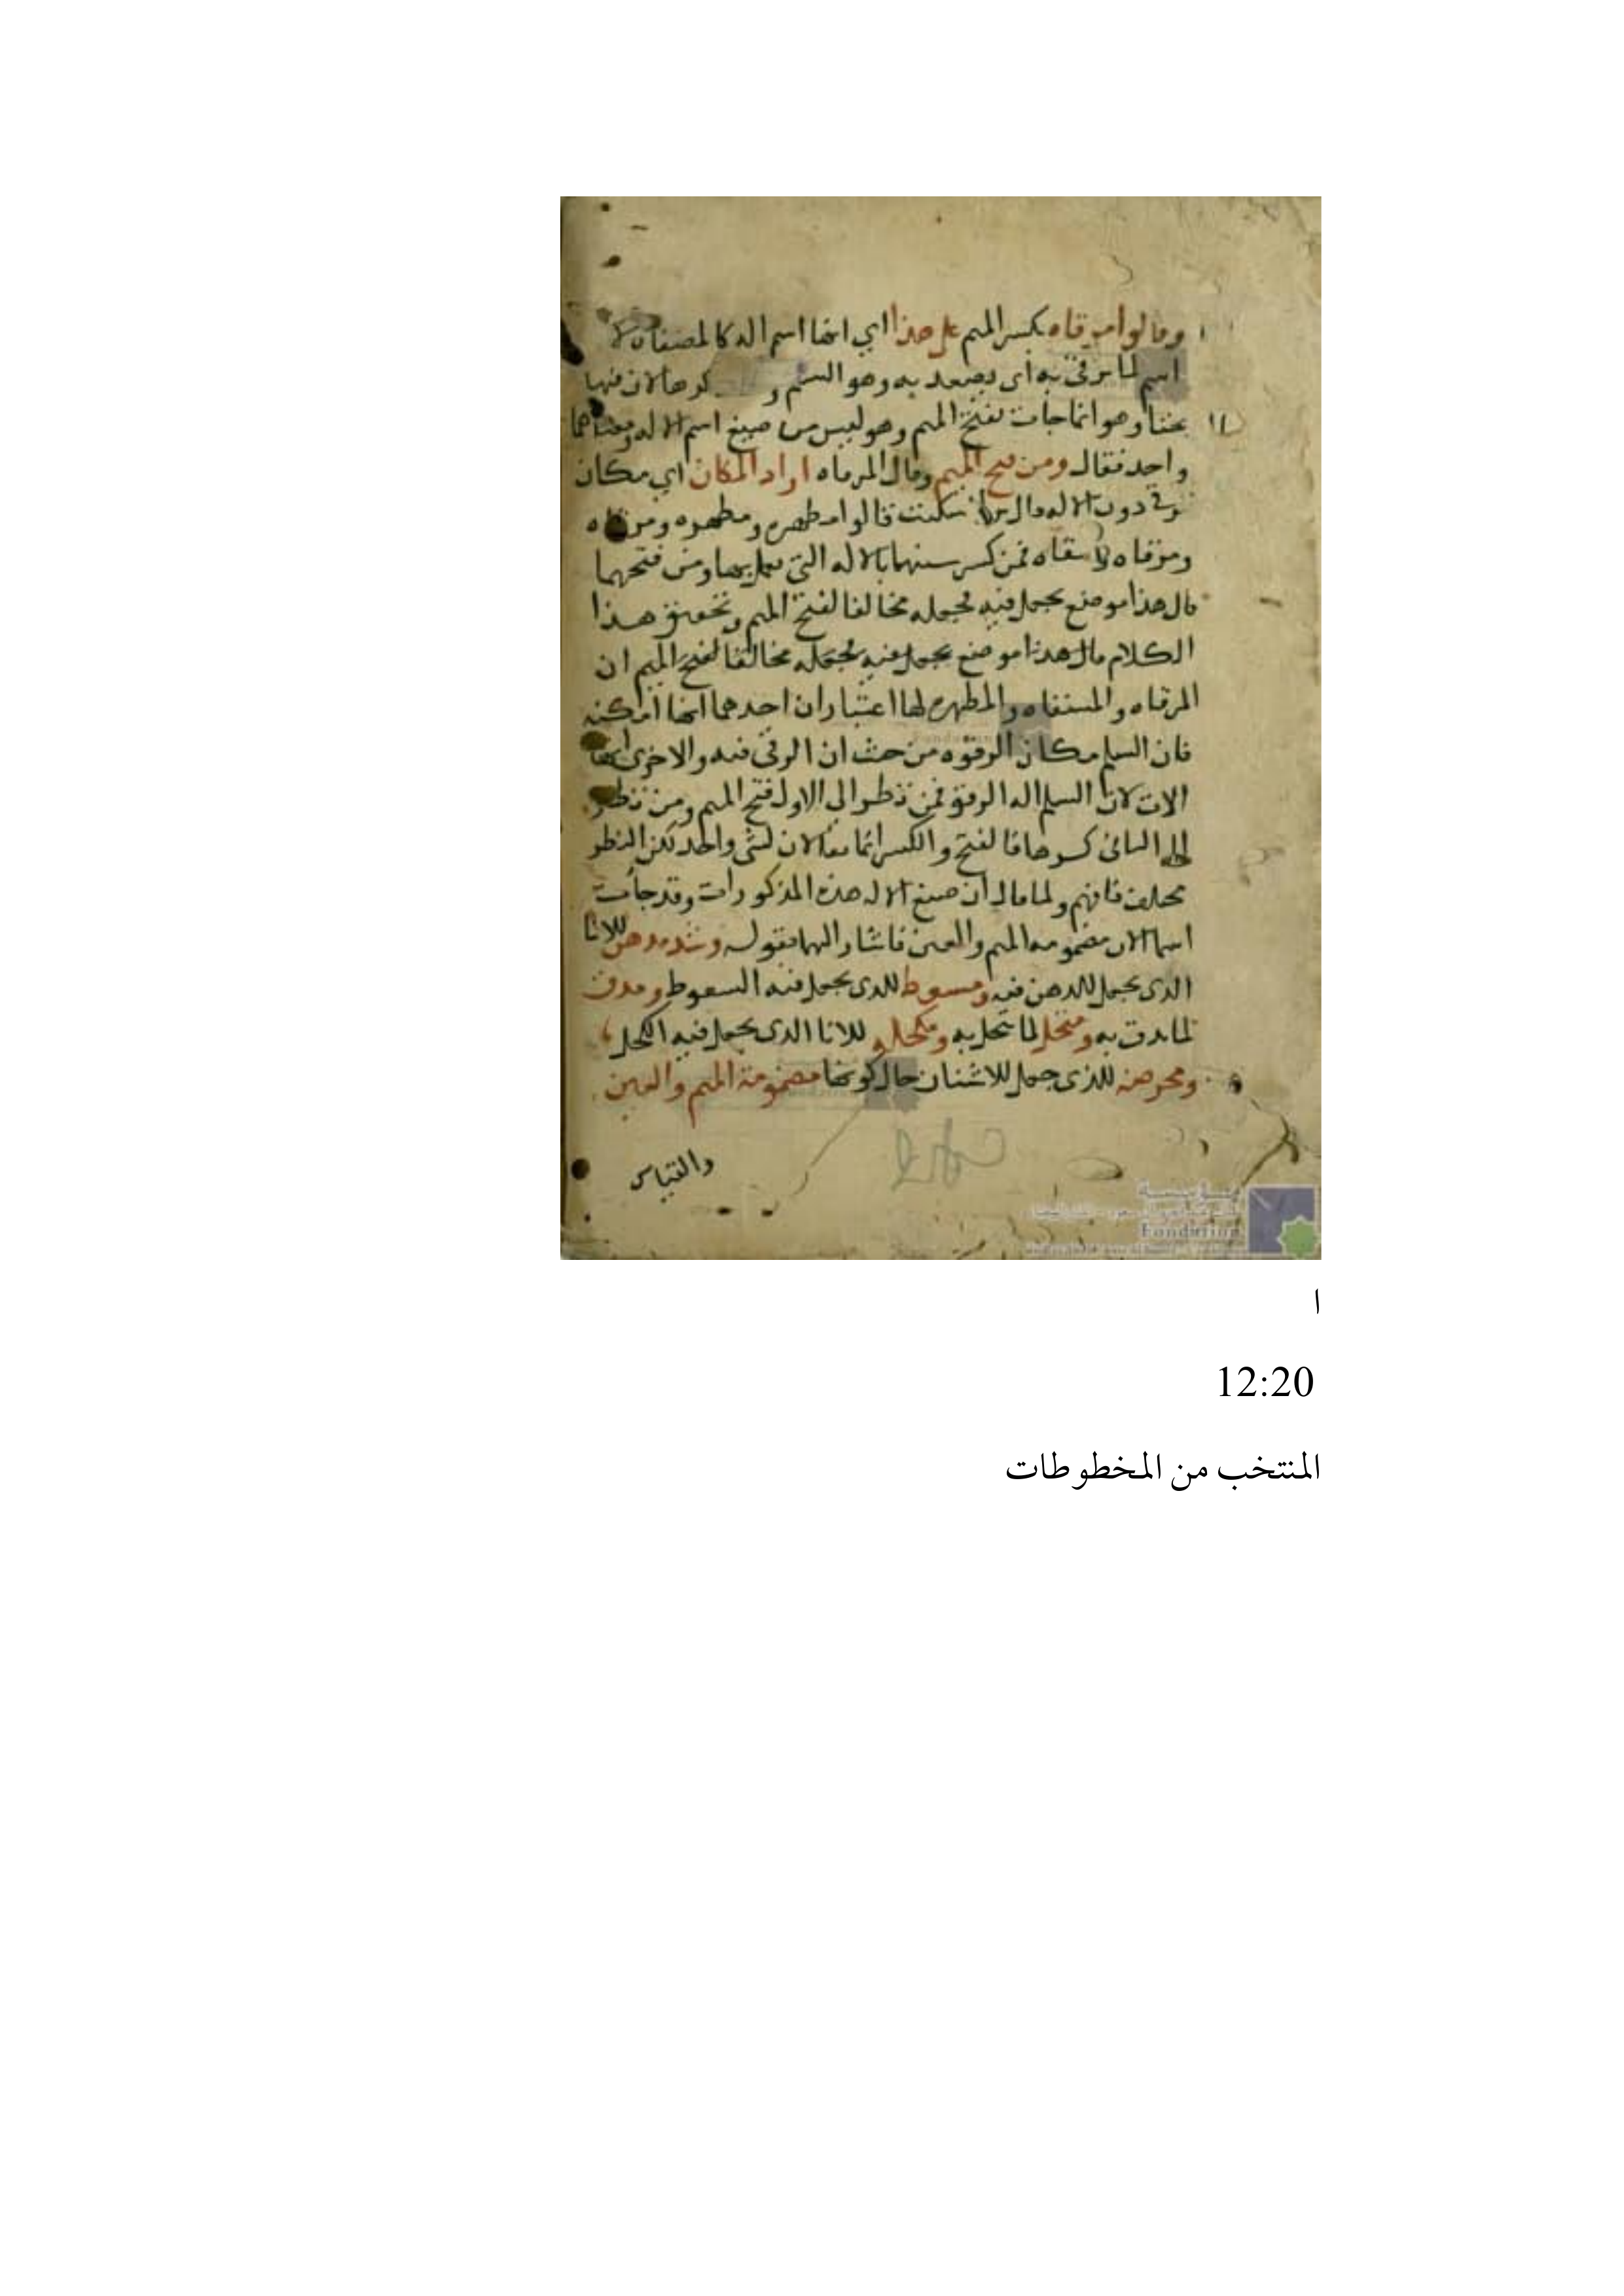 وقالوا مرقاه بكسر الميم على هذا اي انها اسم اله كالمصفاه لا
اسم لما يرقى به اى يصعد به وهو السلم و كرها لان فيها
بحثا وهو انما جات بفتح الميم وهو ليس من صيغ اسم الاله ومعناهما
واحد فقال ومن فتح الميم وقال المرقاه اراد المكان اي مكان
دون الاله قال ابن السكيت قالوا مطهره ومطهره ومرقاه
ومرقاه ومسقاه فمن كسر شبهها بالاله التي يعمل بها ومن فتحهما
قال هذا موضع يجعل فيه فجعله مخالفا لفتح الميم وتحقيق هذا
الكلام قال هذا موضع يجعل فيه فجعله مخالفا لفتح الميم ان
المرقاه والمسقاه والمطهره لها اعتباران احدهما انها امكنه
فان السلم مكان الرقوه من حيث ان الرقى فيه والاخرى انها
الات لان السلم اله الرقوه فمن نظر الى الاول فتح الميم ومن نظر
الى الثانى كسرها فالفتح والكسر انما يقالان لشى واحد لكن النظر
مختلف فافهم ولما قال ان صيغ الاله هذه المذكورات وقد جات
اسما الات مضمومه الميم والعين فاشار اليها بقوله وشذ مدهن للانا
الذى يجعل للدهن فيه ومسعوط للذى يجعل فيه السعوط ومدق
لما يدق به ومنخل لما ينخل به ومكحله للانا الذى يجعل فيه الكحل
ومحرضه للذى جعل للاشنان حال كونها مضمومة الميم والعين
والقياس
مؤسسة
Fondation
ا
12:20
المنتخب من المخطوطات